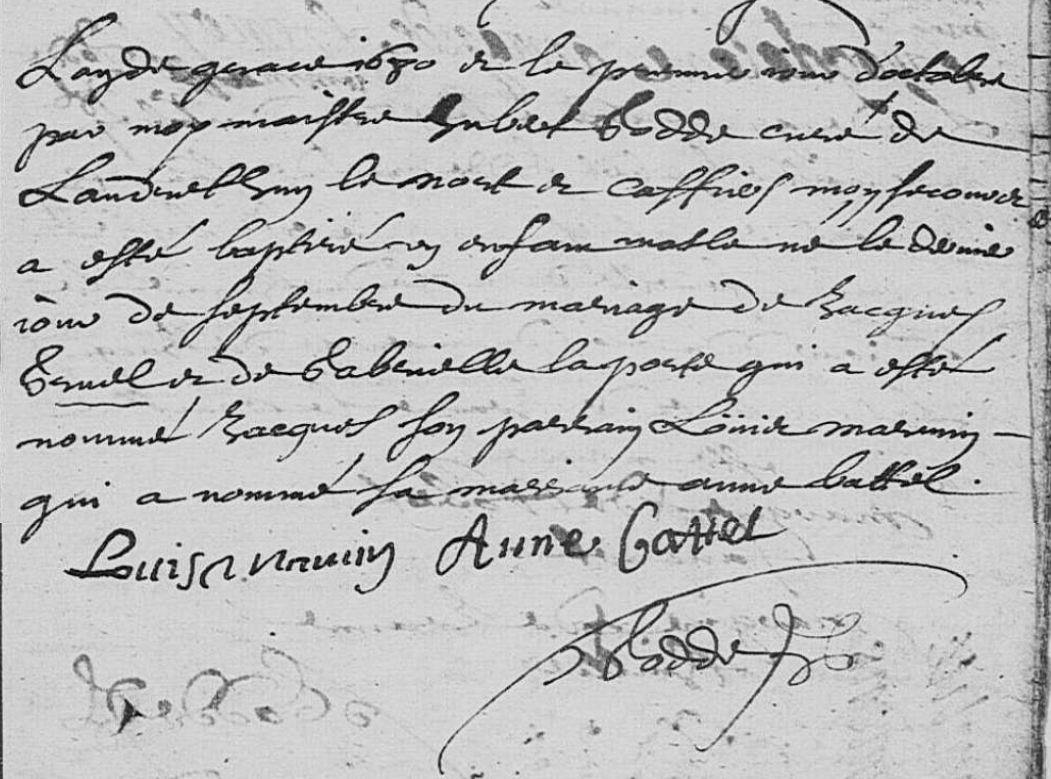 Lan de grace 1680 et le premier iour d'octobre
par moy maistre hubert Godde curé de
Landrethun le nort et Caffiers mon secours
a esté baptizé un enfant masle né le dernier
iour de septembre du mariage de Jacques
et de Gabrielle la porte qui a esté
nommé Jacques son parrain Loüis marmin
qui a nommé sa marraine anne battel.
Louis marmin Anne Battel
Godde